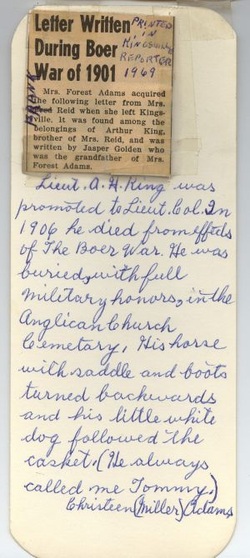 Letter Written
During Boer
War of 1901
PRINTED
IN
KINGSVILLE
REPORTER
1969
FRANK
Mrs. Forest Adams acquired
the following letter from Mrs.
Reid when she left Kings-
ville. It was found among the
belongings of Arthur King,
brother of Mrs. Reid, and was
written by Jasper Golden who
was the grandfather of Mrs.
Forest Adams.
Lieut. A. H. King was
promoted to Lieut. Col. In
1906 he died from effects
of The Boer War. He was
buried, with full
military honors, in the
Anglican Church
Cemetary. His horse
with saddle and boots
turned backwards
and his little white
dog followed the
casket. (He always
called me Tommy.)
Christeen (Miller) Adams